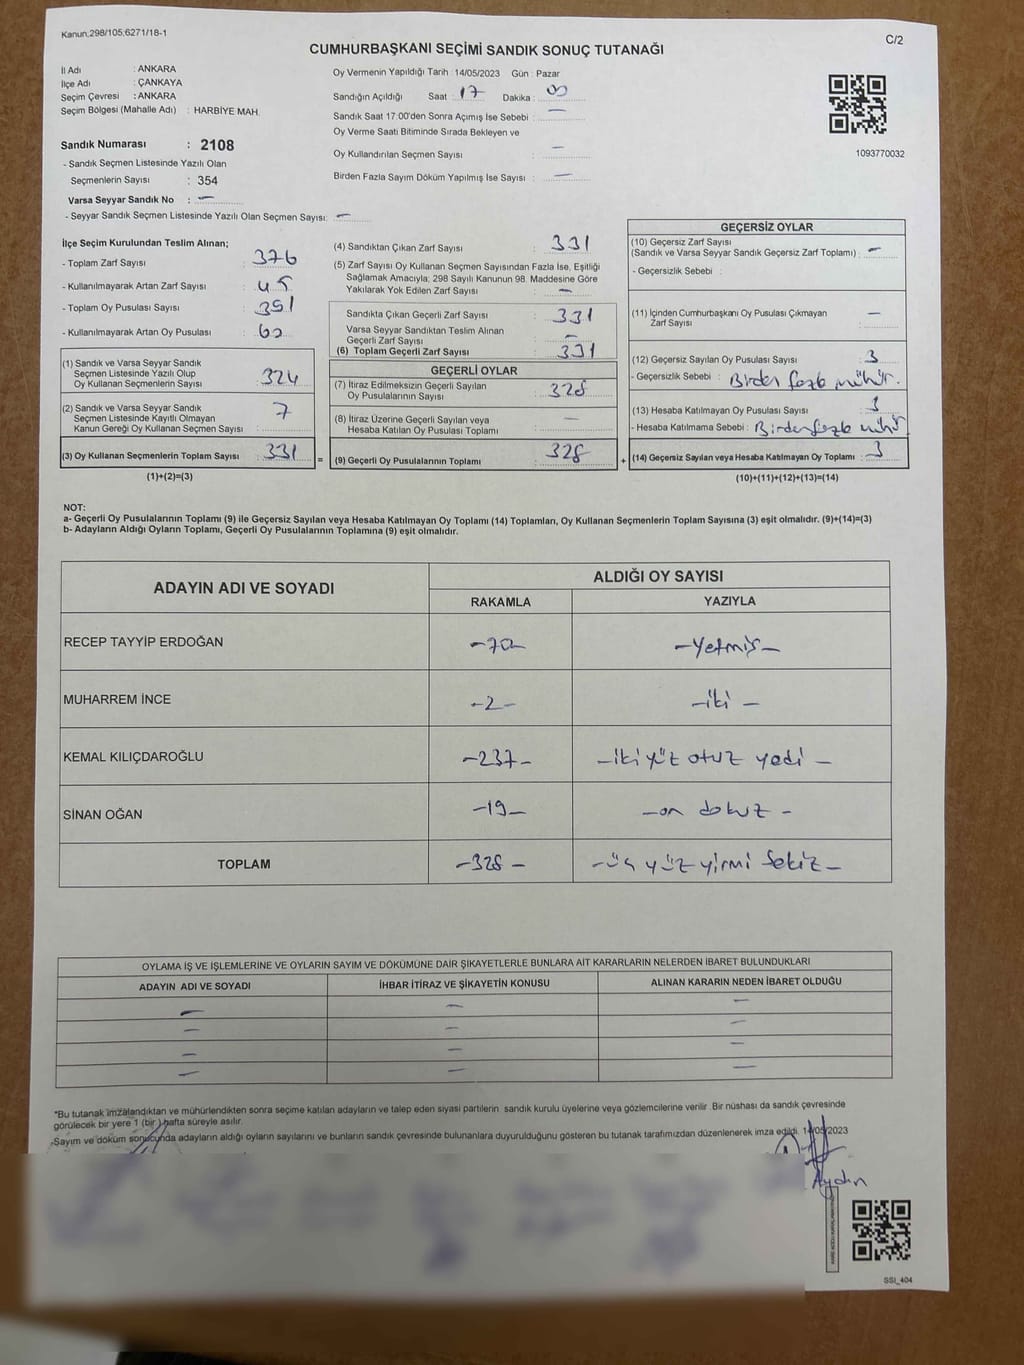 Kanun.298/105,6271/18-1
C/2
CUMHURBAŞKANI SEÇİMİ SANDIK SONUÇ TUTANAĞI
İl Adı : ANKARA
İlçe Adı : ÇANKAYA
Seçim Çevresi : ANKARA
Seçim Bölgesi (Mahalle Adı) : HARBİYE MAH.
Oy Vermenin Yapıldığı Tarih : 14/05/2023 Gün : Pazar
Sandığın Açıldığı Saat : 17 Dakika :
Sandık Saat 17:00'den Sonra Açımış İse Sebebi : —
Oy Verme Saati Bitiminde Sırada Bekleyen ve
Oy Kullandırılan Seçmen Sayısı : —
Birden Fazla Sayım Döküm Yapılmış İse Sayısı : —
1093770032
Sandık Numarası : 2108
- Sandık Seçmen Listesinde Yazılı Olan
Seçmenlerin Sayısı : 354
Varsa Seyyar Sandık No : —
- Seyyar Sandık Seçmen Listesinde Yazılı Olan Seçmen Sayısı: —
İlçe Seçim Kurulundan Teslim Alınan;
- Toplam Zarf Sayısı : 376
- Kullanılmayarak Artan Zarf Sayısı : 45
- Toplam Oy Pusulası Sayısı : 391
- Kullanılmayarak Artan Oy Pusulası : 60
(1) Sandık ve Varsa Seyyar Sandık
Seçmen Listesinde Yazılı Olup
Oy Kullanan Seçmenlerin Sayısı : 324
(2) Sandık ve Varsa Seyyar Sandık
Seçmen Listesinde Kayıtlı Olmayan
Kanun Gereği Oy Kullanan Seçmen Sayısı : 7
(3) Oy Kullanan Seçmenlerin Toplam Sayısı : 331
(1)+(2)=(3)
(4) Sandıktan Çıkan Zarf Sayısı : 331
(5) Zarf Sayısı Oy Kullanan Seçmen Sayısından Fazla İse, Eşitliği
Sağlamak Amacıyla; 298 Sayılı Kanunun 98. Maddesine Göre
Yakılarak Yok Edilen Zarf Sayısı : —
Sandıkta Çıkan Geçerli Zarf Sayısı : 331
Varsa Seyyar Sandıktan Teslim Alınan
Geçerli Zarf Sayısı : —
(6) Toplam Geçerli Zarf Sayısı : 331
GEÇERLİ OYLAR
(7) İtiraz Edilmeksizin Geçerli Sayılan
Oy Pusulalarının Sayısı : 328
(8) İtiraz Üzerine Geçerli Sayılan veya
Hesaba Katılan Oy Pusulaları Toplamı : —
= (9) Geçerli Oy Pusulalarının Toplamı : 328 +
GEÇERSİZ OYLAR
(10) Geçersiz Zarf Sayısı
(Sandık ve Varsa Seyyar Sandık Geçersiz Zarf Toplamı) : —
- Geçersizlik Sebebi :
(11) İçinden Cumhurbaşkanı Oy Pusulası Çıkmayan
Zarf Sayısı : —
(12) Geçersiz Sayılan Oy Pusulası Sayısı : 3
- Geçersizlik Sebebi : Birden fazla mühür.
(13) Hesaba Katılmayan Oy Pusulası Sayısı :
- Hesaba Katılmama Sebebi : Birden fazla mühür
(14) Geçersiz Sayılan veya Hesaba Katılmayan Oy Toplamı : 3
(10)+(11)+(12)+(13)=(14)
NOT:
a- Geçerli Oy Pusulalarının Toplamı (9) ile Geçersiz Sayılan veya Hesaba Katılmayan Oy Toplamı (14) Toplamları, Oy Kullanan Seçmenlerin Toplam Sayısına (3) eşit olmalıdır. (9)+(14)=(3)
b- Adayların Aldığı Oyların Toplamı, Geçerli Oy Pusulalarının Toplamına (9) eşit olmalıdır.
ADAYIN ADI VE SOYADI
ALDIĞI OY SAYISI
RAKAMLA YAZIYLA
RECEP TAYYİP ERDOĞAN -70- -Yetmiş-
MUHARREM İNCE -2- -iki-
KEMAL KILIÇDAROĞLU -237- -iki yüz otuz yedi-
SİNAN OĞAN -19- -on dokuz-
TOPLAM -328- -üç yüz yirmi sekiz-
OYLAMA İŞ VE İŞLEMLERİNE VE OYLARIN SAYIM VE DÖKÜMÜNE DAİR ŞİKAYETLERLE BUNLARA AİT KARARLARIN NELERDEN İBARET BULUNDUKLARI
ADAYIN ADI VE SOYADI İHBAR İTİRAZ VE ŞİKAYETİN KONUSU ALINAN KARARIN NEDEN İBARET OLDUĞU
— — —
— — —
— — —
— — —
*Bu tutanak imzalandıktan ve mühürlendikten sonra seçime katılan adayların ve talep eden siyasi partilerin sandık kurulu üyelerine veya gözlemcilerine verilir. Bir nüshası da sandık çevresinde
görülecek bir yere 1 (bir) hafta süreyle asılır.
-Sayım ve döküm sonucunda adayların aldığı oyların sayılarını ve bunların sandık çevresinde bulunanlara duyurulduğunu gösteren bu tutanak tarafımızdan düzenlenerek imza edildi. 14/05/2023
Aydın
SSI_404